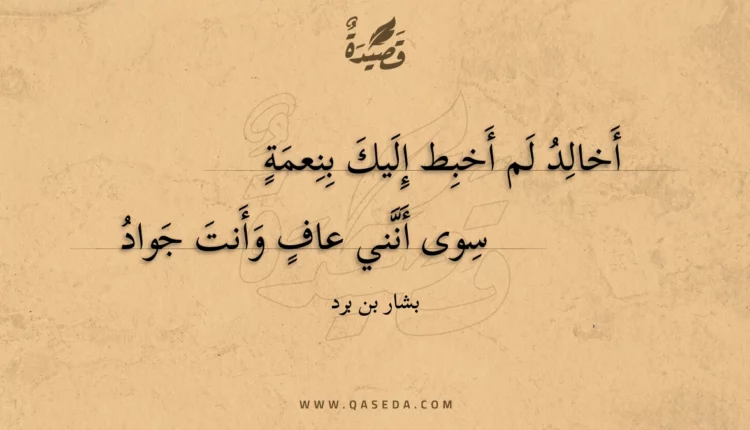 قَصِيْدَةٌ
أَخالِدُ لَم أَخبِط إِلَيكَ بِنِعمَةٍ
سِوى أَنَّني عافٍ وَأَنتَ جَوادُ
بشار بن برد
WWW.QASEDA.COM